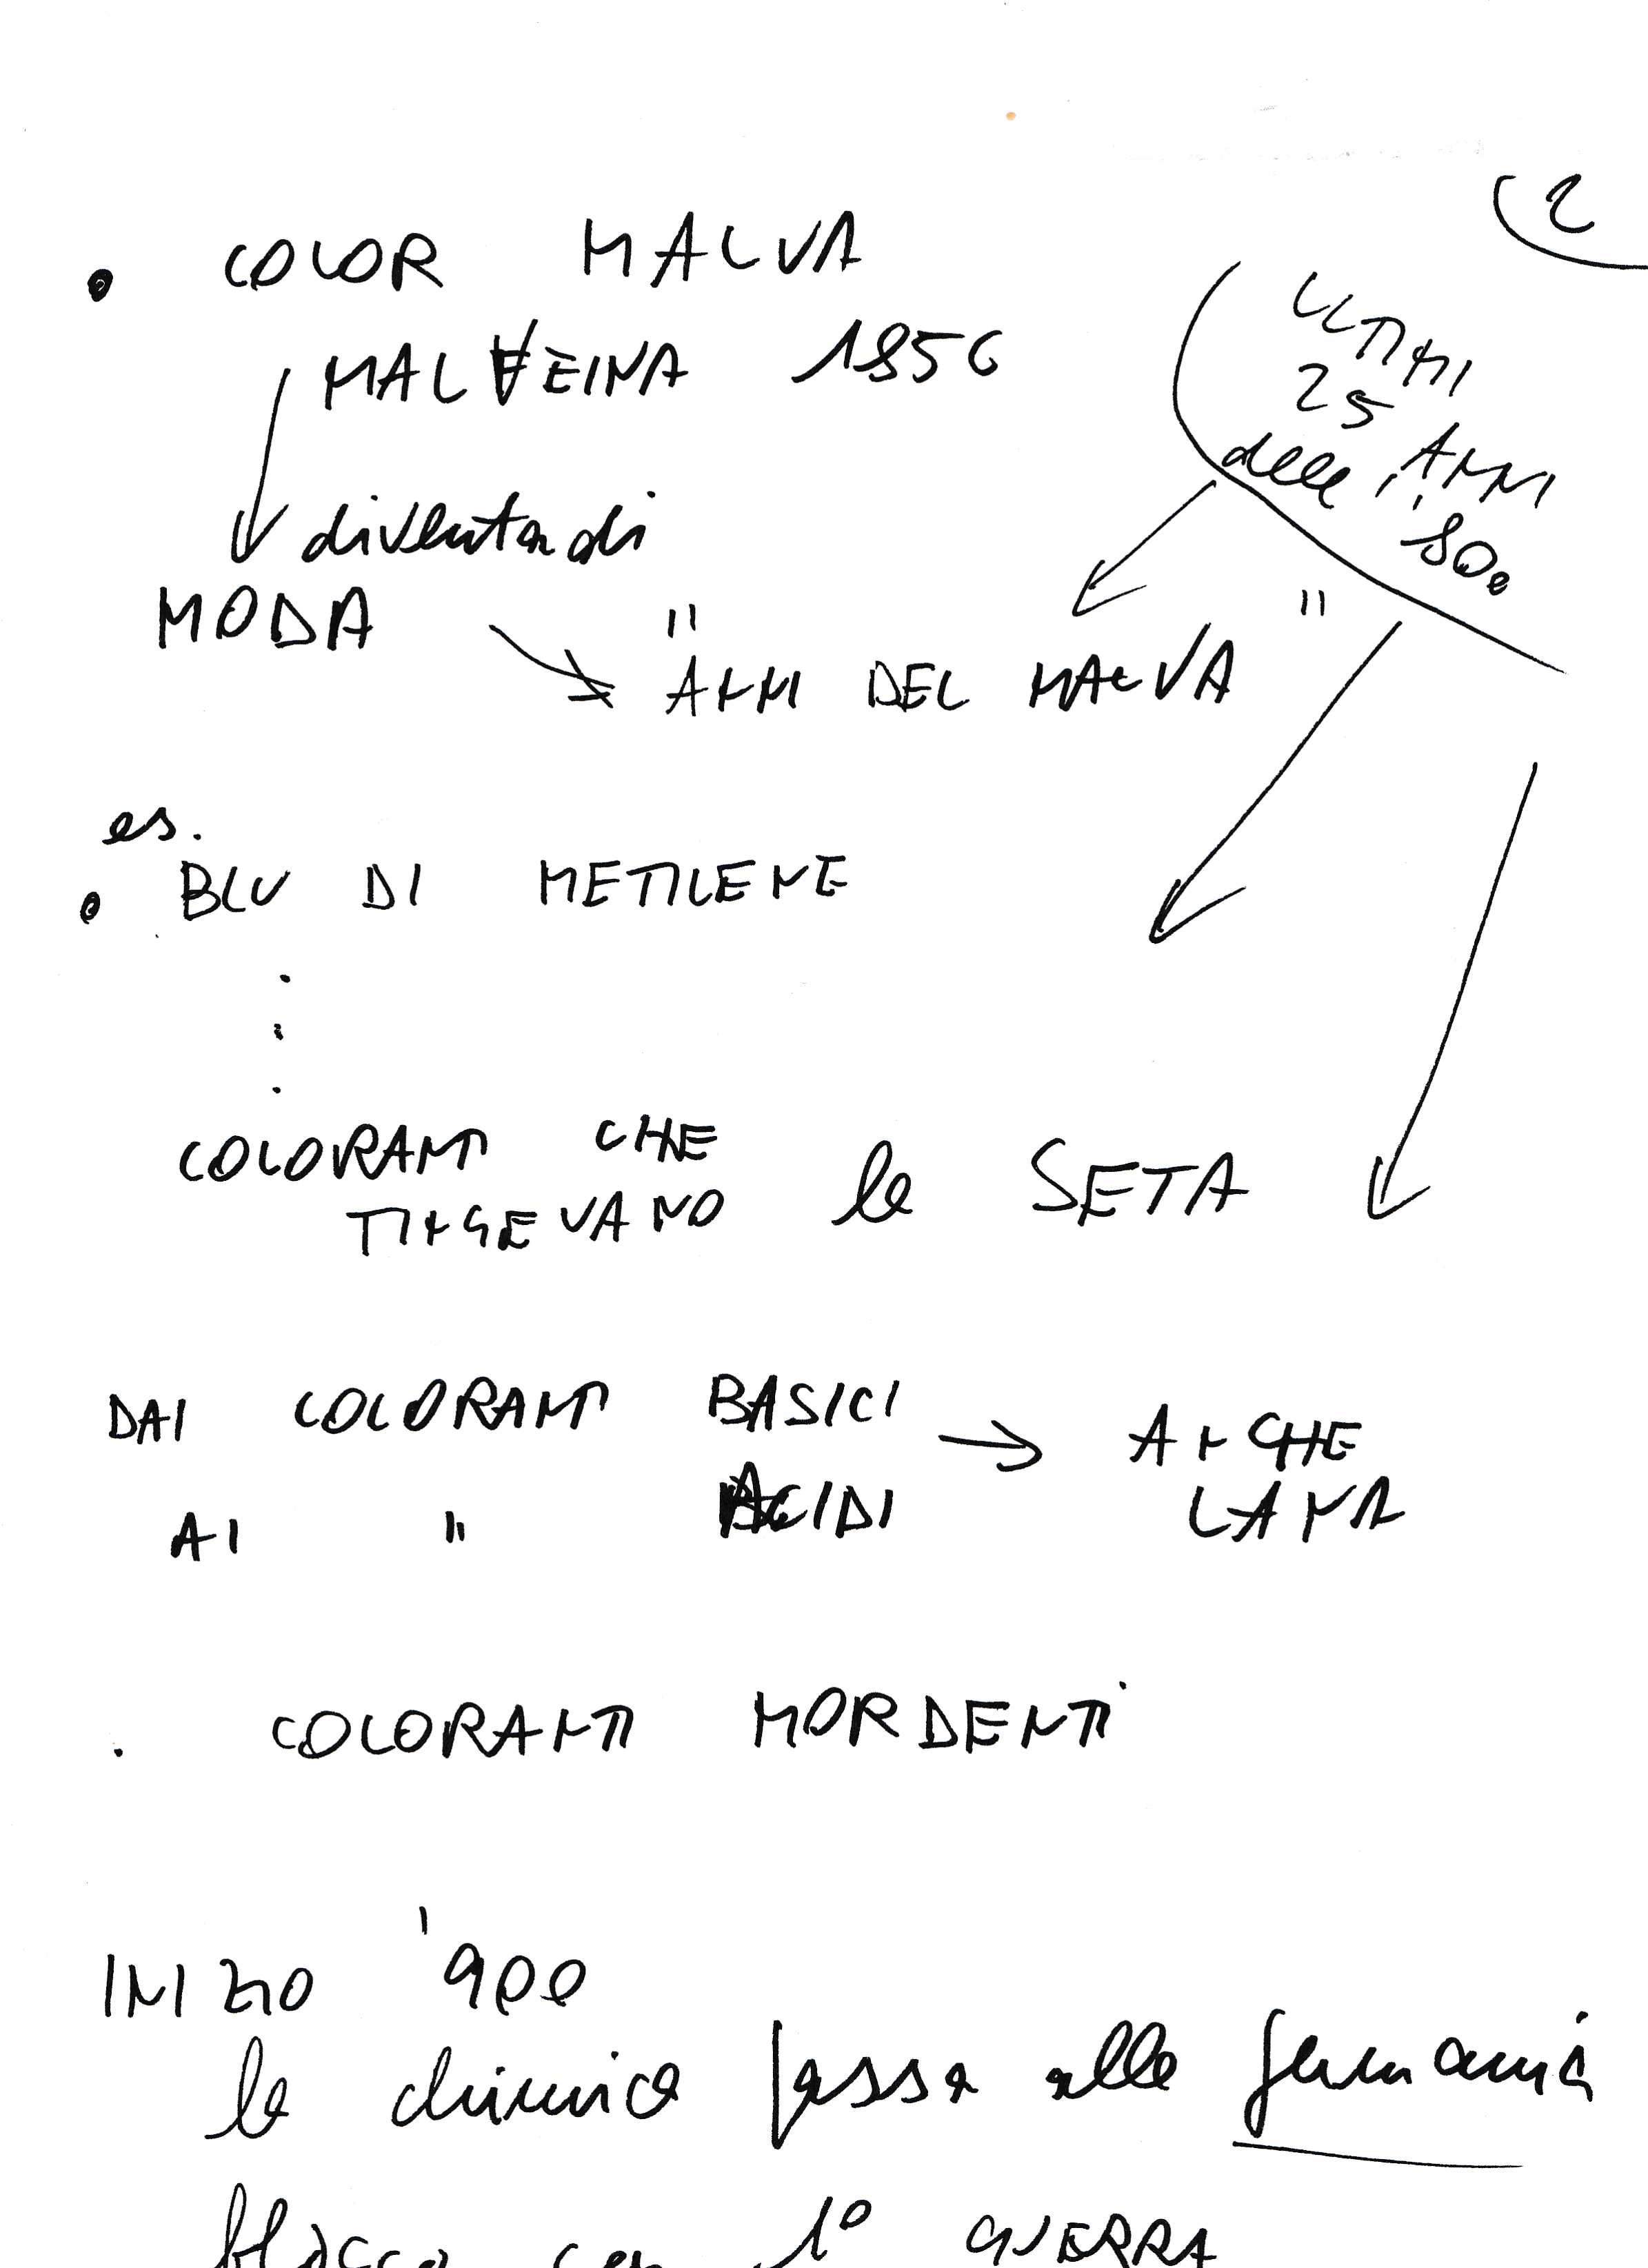 2
• COLOR MALVA
MALVEINA 1856
ULTIMI
25 ANNI
delle
'800
diventa di
MODA
" ANNI DEL MALVA "
es.
• BLU DI METILENE
.
.
.
COLORANTI CHE
TINGEVANO la SETA
DAI COLORANTI BASICI → ANCHE
AI " ACIDI LANA
. COLORANTI MORDENTI
INIZIO '900
la chimica passa alla germania
blocco con 1° GUERRA